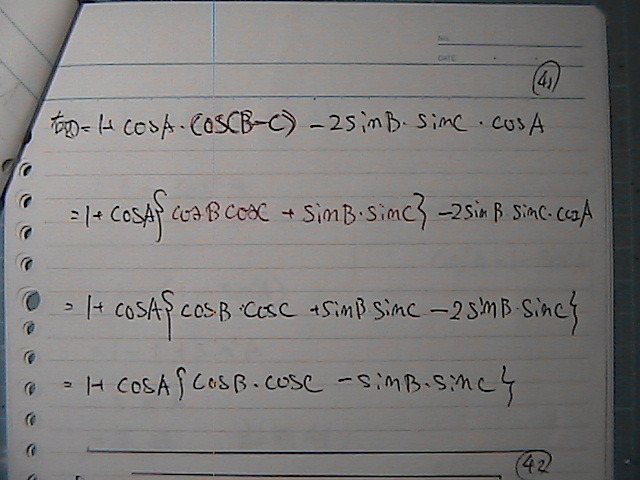 No.
DATE
41
右辺=1+cosA・cos(B-C) -2sinB・sinC・cosA
=1+cosA{cosBcosC +sinB・sinC} -2sinB sinC・cosA
=1+cosA{cosB・cosC +sinB sinC -2sinB・sinC}
=1+cosA{cosB・cosC -sinB・sinC}
42